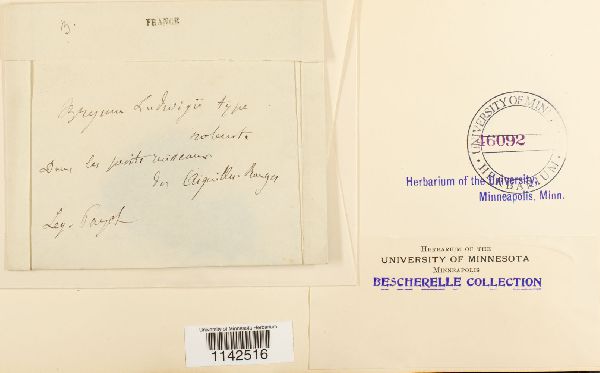 B.
FRANCE
Bryum Ludwigii type
robusta
Dans les petits ruisseaux
des Aiguilles Rouges
Leg. Payot
UNIVERSITY OF MINN.
HERBARIUM
46092
Herbarium of the University,
Minneapolis, Minn.
HERBARIUM OF THE
UNIVERSITY OF MINNESOTA
MINNEAPOLIS
BESCHERELLE COLLECTION
University of Minnesota Herbarium
1142516